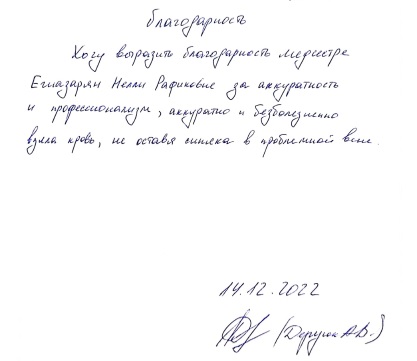 благодарность
Хочу выразить благодарность медсестре
Егиазарян Нелли Рафиковне за аккуратность
и профессионализм, аккуратно и безболезненно
взяла кровь, не оставя синяка в проблемной вене.
14.12.2022